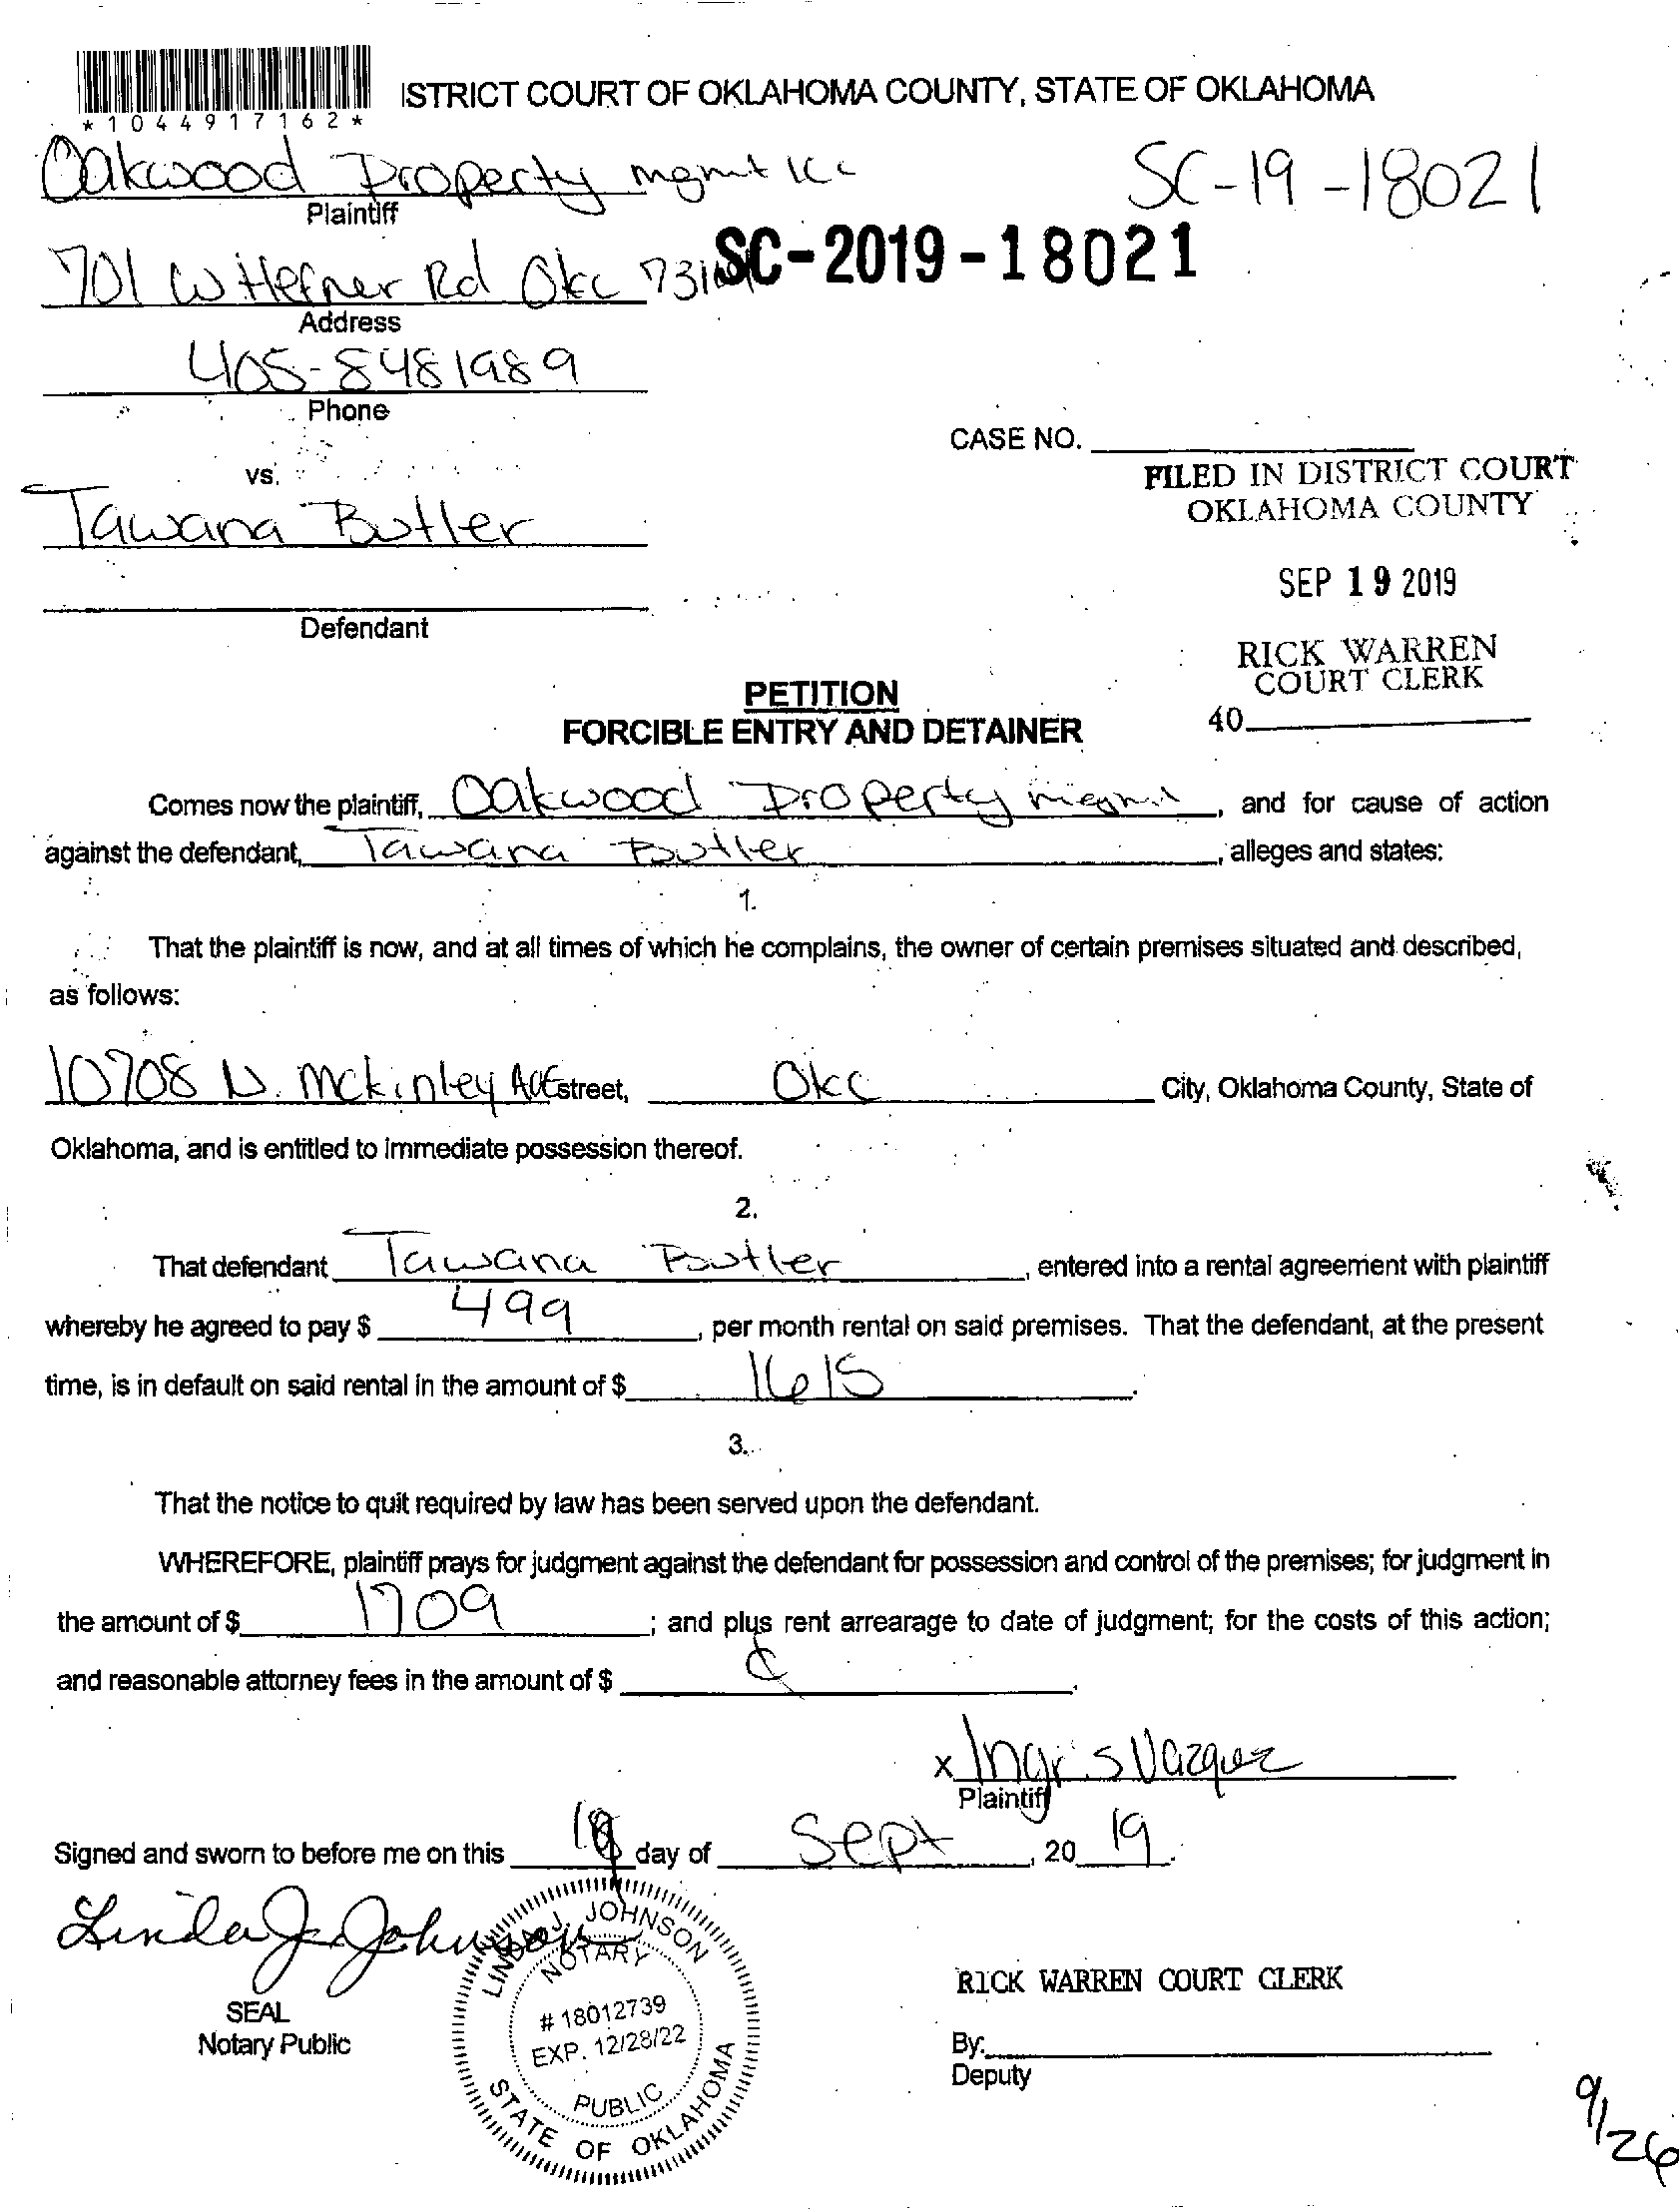 ISTRICT COURT OF OKLAHOMA COUNTY, STATE OF OKLAHOMA
*1044917162*
Oakwood Property mgmt llc
SC-19-18021
Plaintiff
701 W Hefner Rd Okc
SC-2019-18021
Address
405-8481989
Phone
CASE NO.
vs.
FILED IN DISTRICT COURT
OKLAHOMA COUNTY
Tawana Butler
SEP 19 2019
Defendant
RICK WARREN
COURT CLERK
PETITION
40
FORCIBLE ENTRY AND DETAINER
Comes now the plaintiff, Oakwood Property mgmt, and for cause of action
against the defendant, Tawana Butler, alleges and states:
1.
That the plaintiff is now, and at all times of which he complains, the owner of certain premises situated and described,
as follows:
10708 N. Mckinley Ave street, Okc City, Oklahoma County, State of
Oklahoma, and is entitled to immediate possession thereof.
2.
That defendant Tawana Butler, entered into a rental agreement with plaintiff
whereby he agreed to pay $ 499, per month rental on said premises. That the defendant, at the present
time, is in default on said rental in the amount of $ 1615.
3.
That the notice to quit required by law has been served upon the defendant.
WHEREFORE, plaintiff prays for judgment against the defendant for possession and control of the premises; for judgment in
the amount of $ 1709; and plus rent arrearage to date of judgment; for the costs of this action;
and reasonable attorney fees in the amount of $
x Ingris Vazquez
Plaintiff
Signed and sworn to before me on this day of Sept, 20 19.
Linda J Johnson
LINDA J. JOHNSON
NOTARY
# 18012739
EXP. 12/28/22
PUBLIC
STATE OF OKLAHOMA
SEAL
Notary Public
RICK WARREN COURT CLERK
By:
Deputy
9/26